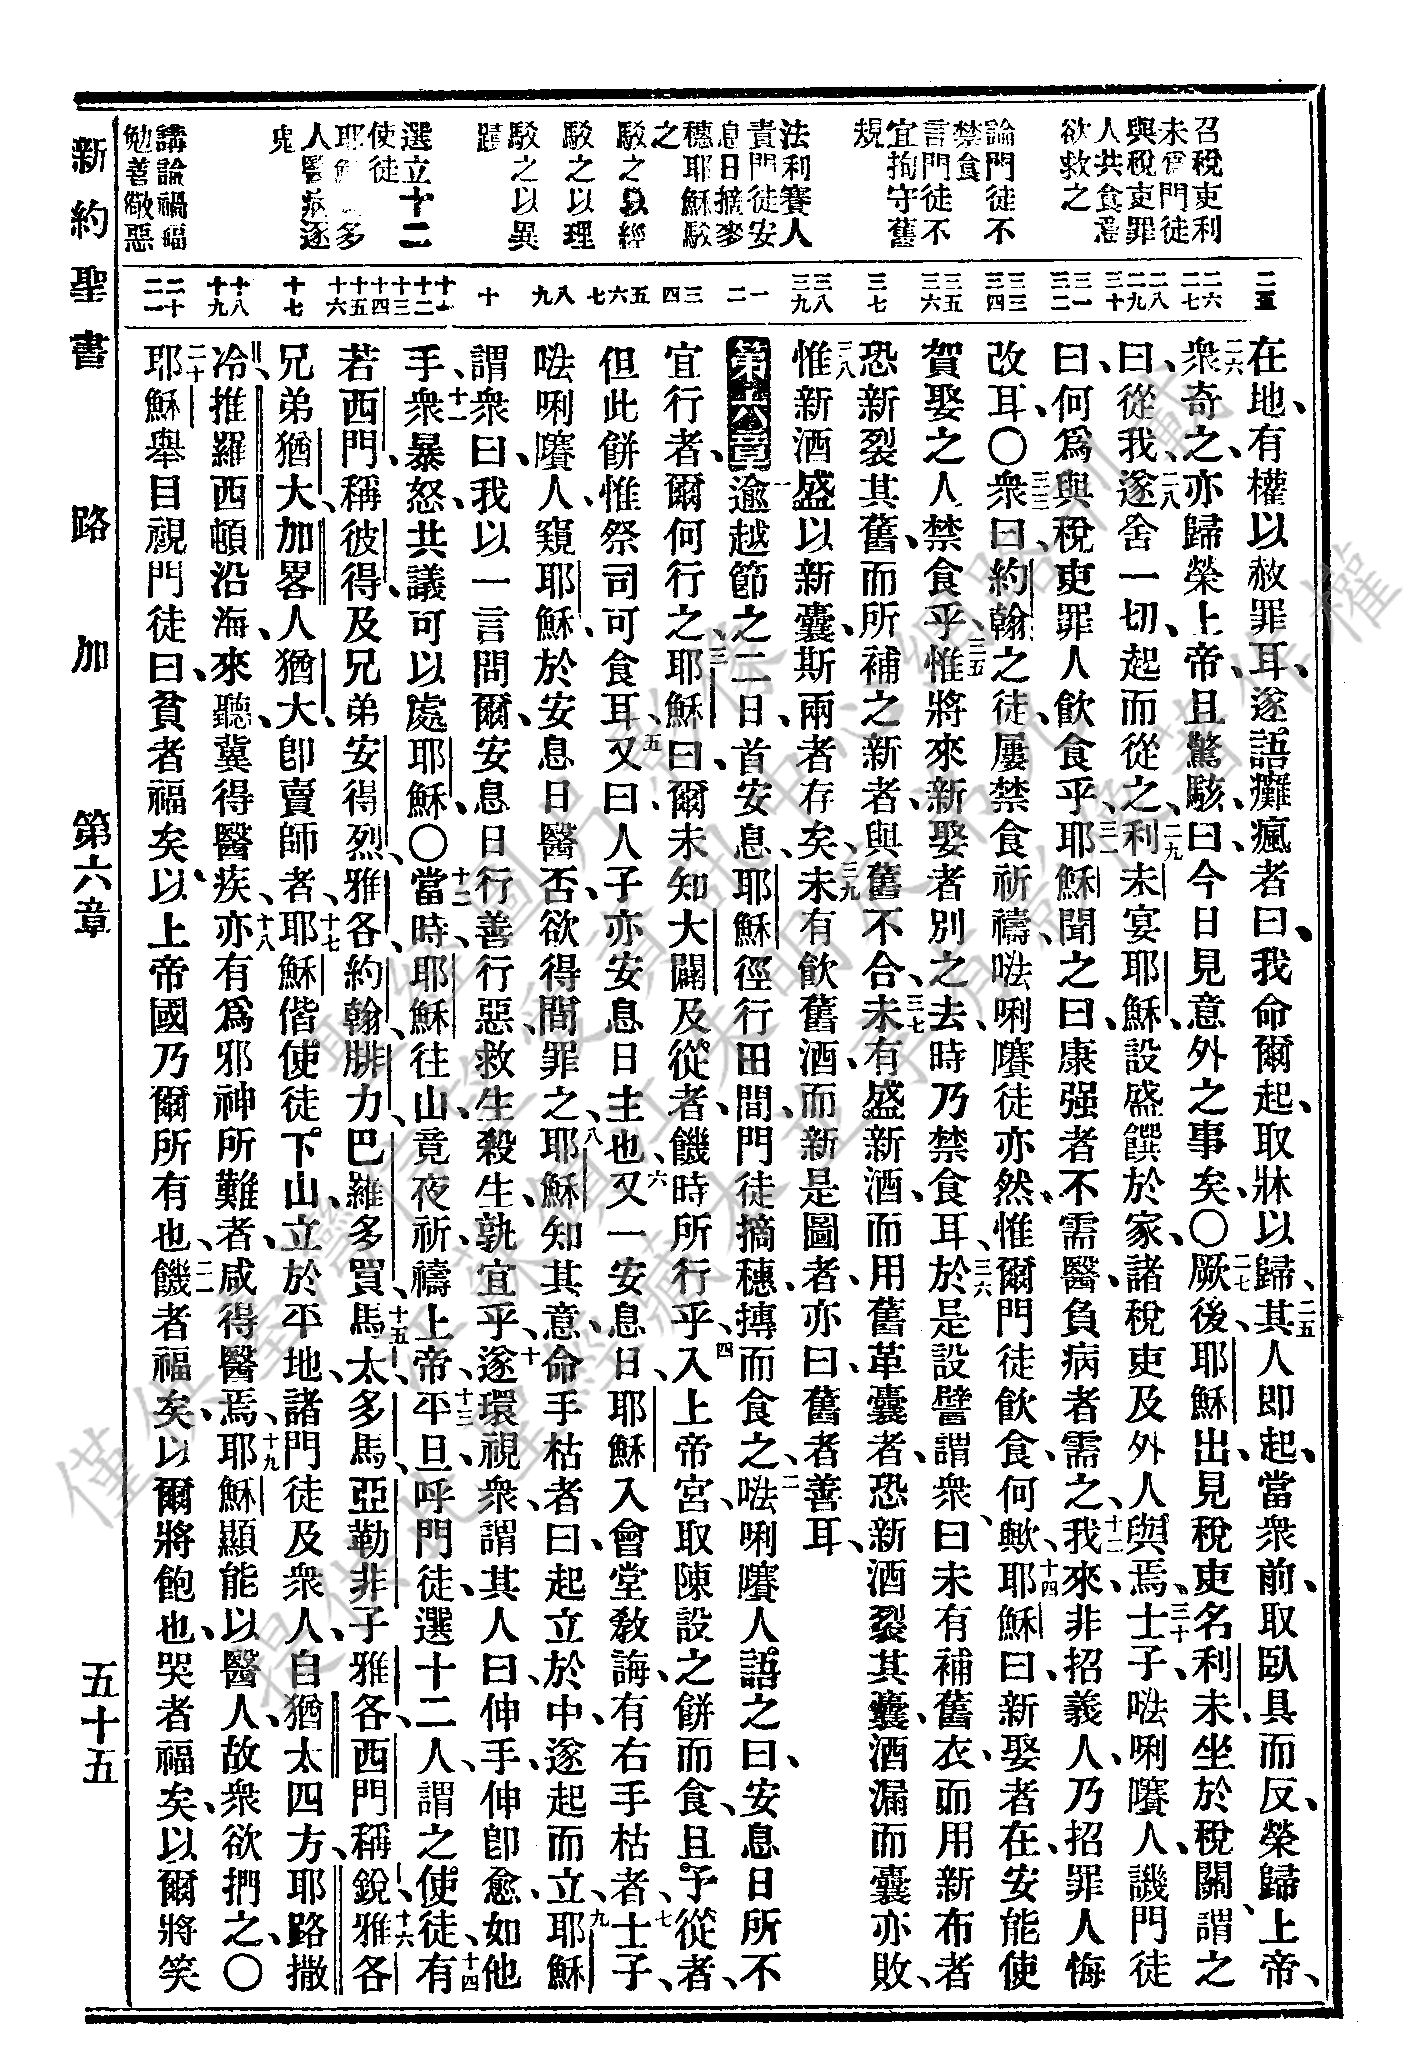 召稅吏利
未爲門徒
與稅吏罪
人共食蓋
欲救之
論門徒不
禁食
言門徒不
宜拘守舊
規
法利賽人
責門徒安
息日摘麥
穗耶穌駁
之
駁之以經
駁之以理
駁之以異
蹟
選立十二
使徒
人醫病逐
鬼
講論禍福
勉善儆惡
二五
二六
二七
二八
二九
三十
三一
三二
三三
三四
三五
三六
三七
三八
三九
一
二
三
四
五
六
七
八
九
十
十一
十二
十三
十四
十五
十六
十七
十八
十九
二十
二一
在地、有權以赦罪耳、遂語癱瘋者曰、我命爾起、取牀以歸、二五其人即起、當衆前、取臥具而反、榮歸上帝、
二六衆奇之、亦歸榮上帝、且驚駭曰、今日見意外之事矣、〇二七厥後、耶穌出、見稅吏名利未、坐於稅關、謂之
曰、從我、二八遂舍一切、起而從之、二九利未宴耶穌、設盛饌於家、諸稅吏及外人與焉、三十士子、㗲唎㘔人、譏門徒
曰、何爲與稅吏罪人飲食乎、三一耶穌聞之曰、康强者不需醫、負病者需之、十二我來、非招義人、乃招罪人悔
改耳、〇三三衆曰、約翰之徒、屢禁食祈禱、㗲唎㘔徒亦然、惟爾門徒飲食、何歟、十四耶穌曰、新娶者在、安能使
賀娶之人禁食乎、三五惟將來新娶者別之去、時乃禁食耳、三六於是設譬謂衆曰、未有補舊衣、而用新布者、
恐新裂其舊、而所補之新者、與舊不合、三七未有盛新酒、而用舊革囊者、恐新酒裂其囊、酒漏而囊亦敗、
三八惟新酒盛以新囊、斯兩者存矣、三九未有飲舊酒、而新是圖者、亦曰、舊者善耳、
第六章一逾越節之二日、首安息、耶穌徑行田間、門徒摘穗、摶而食之、二㗲唎㘔人語之曰、安息日所不
宜行者、爾何行之、三耶穌曰、爾未知大闢及從者饑時所行乎、四入上帝宮、取陳設之餅而食、且予從者、
但此餅惟祭司可食耳、五又曰、人子亦安息日主也、六又一安息日、耶穌入會堂敎誨、有右手枯者、七士子、
㗲唎㘔人、窺耶穌、於安息日醫否、欲得間罪之、八耶穌知其意、命手枯者曰、起立於中、遂起而立、九耶穌
謂衆曰、我以一言問爾、安息日行善行惡、救生殺生、孰宜乎、十遂環視衆、謂其人曰、伸手、伸卽愈、如他
手、十一衆暴怒、共議可以處耶穌、〇十二當時、耶穌往山、竟夜祈禱上帝、十三平旦、呼門徒、選十二人、謂之使徒、十四有
若西門、稱彼得、及兄弟安得烈、雅各、約翰、腓力、巴羅多買、十五馬太、多馬、亞勒非子雅各、西門稱銳、十六雅各
兄弟猶大、加畧人猶大、卽賣師者、十七耶穌偕使徒下山、立於平地、諸門徒及衆人、自猶太四方、耶路撒
冷、推羅西頓沿海、來聽、冀得醫疾、十八亦有爲邪神所難者、咸得醫焉、十九耶穌顯能以醫人、故衆欲捫之、〇
二十耶穌舉目視門徒曰、貧者福矣、以上帝國乃爾所有也、二一饑者福矣、以爾將飽也、哭者福矣、以爾將笑
新約聖書 路加 第六章 五十五